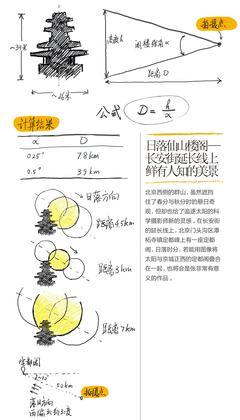 拍摄点
~34米
高度h
阁楼路角α
距离D
~26米
公式 D = h/α
计算结果
α D
0.25° 7.8km
0.5° 3.9km
日落方向
距离4.5km
距离3km
距离7km
定都阁
~50km
拍摄点
落日方向
日落仙山楼阁—
长安街延长线上
鲜有人知的美景
北京西侧的群山，虽然遮挡
住了春分与秋分时的悬日奇
观，但却也给了追逐太阳的科
学摄影师新的灵感。在长安街
的延长线上，北京门头沟区潭
柘寺镇定都峰上有一座定都
阁。日落时分，若能用图像将
太阳与京城正西的定都阁叠合
在一起，也将会是张非常有意
义的作品。